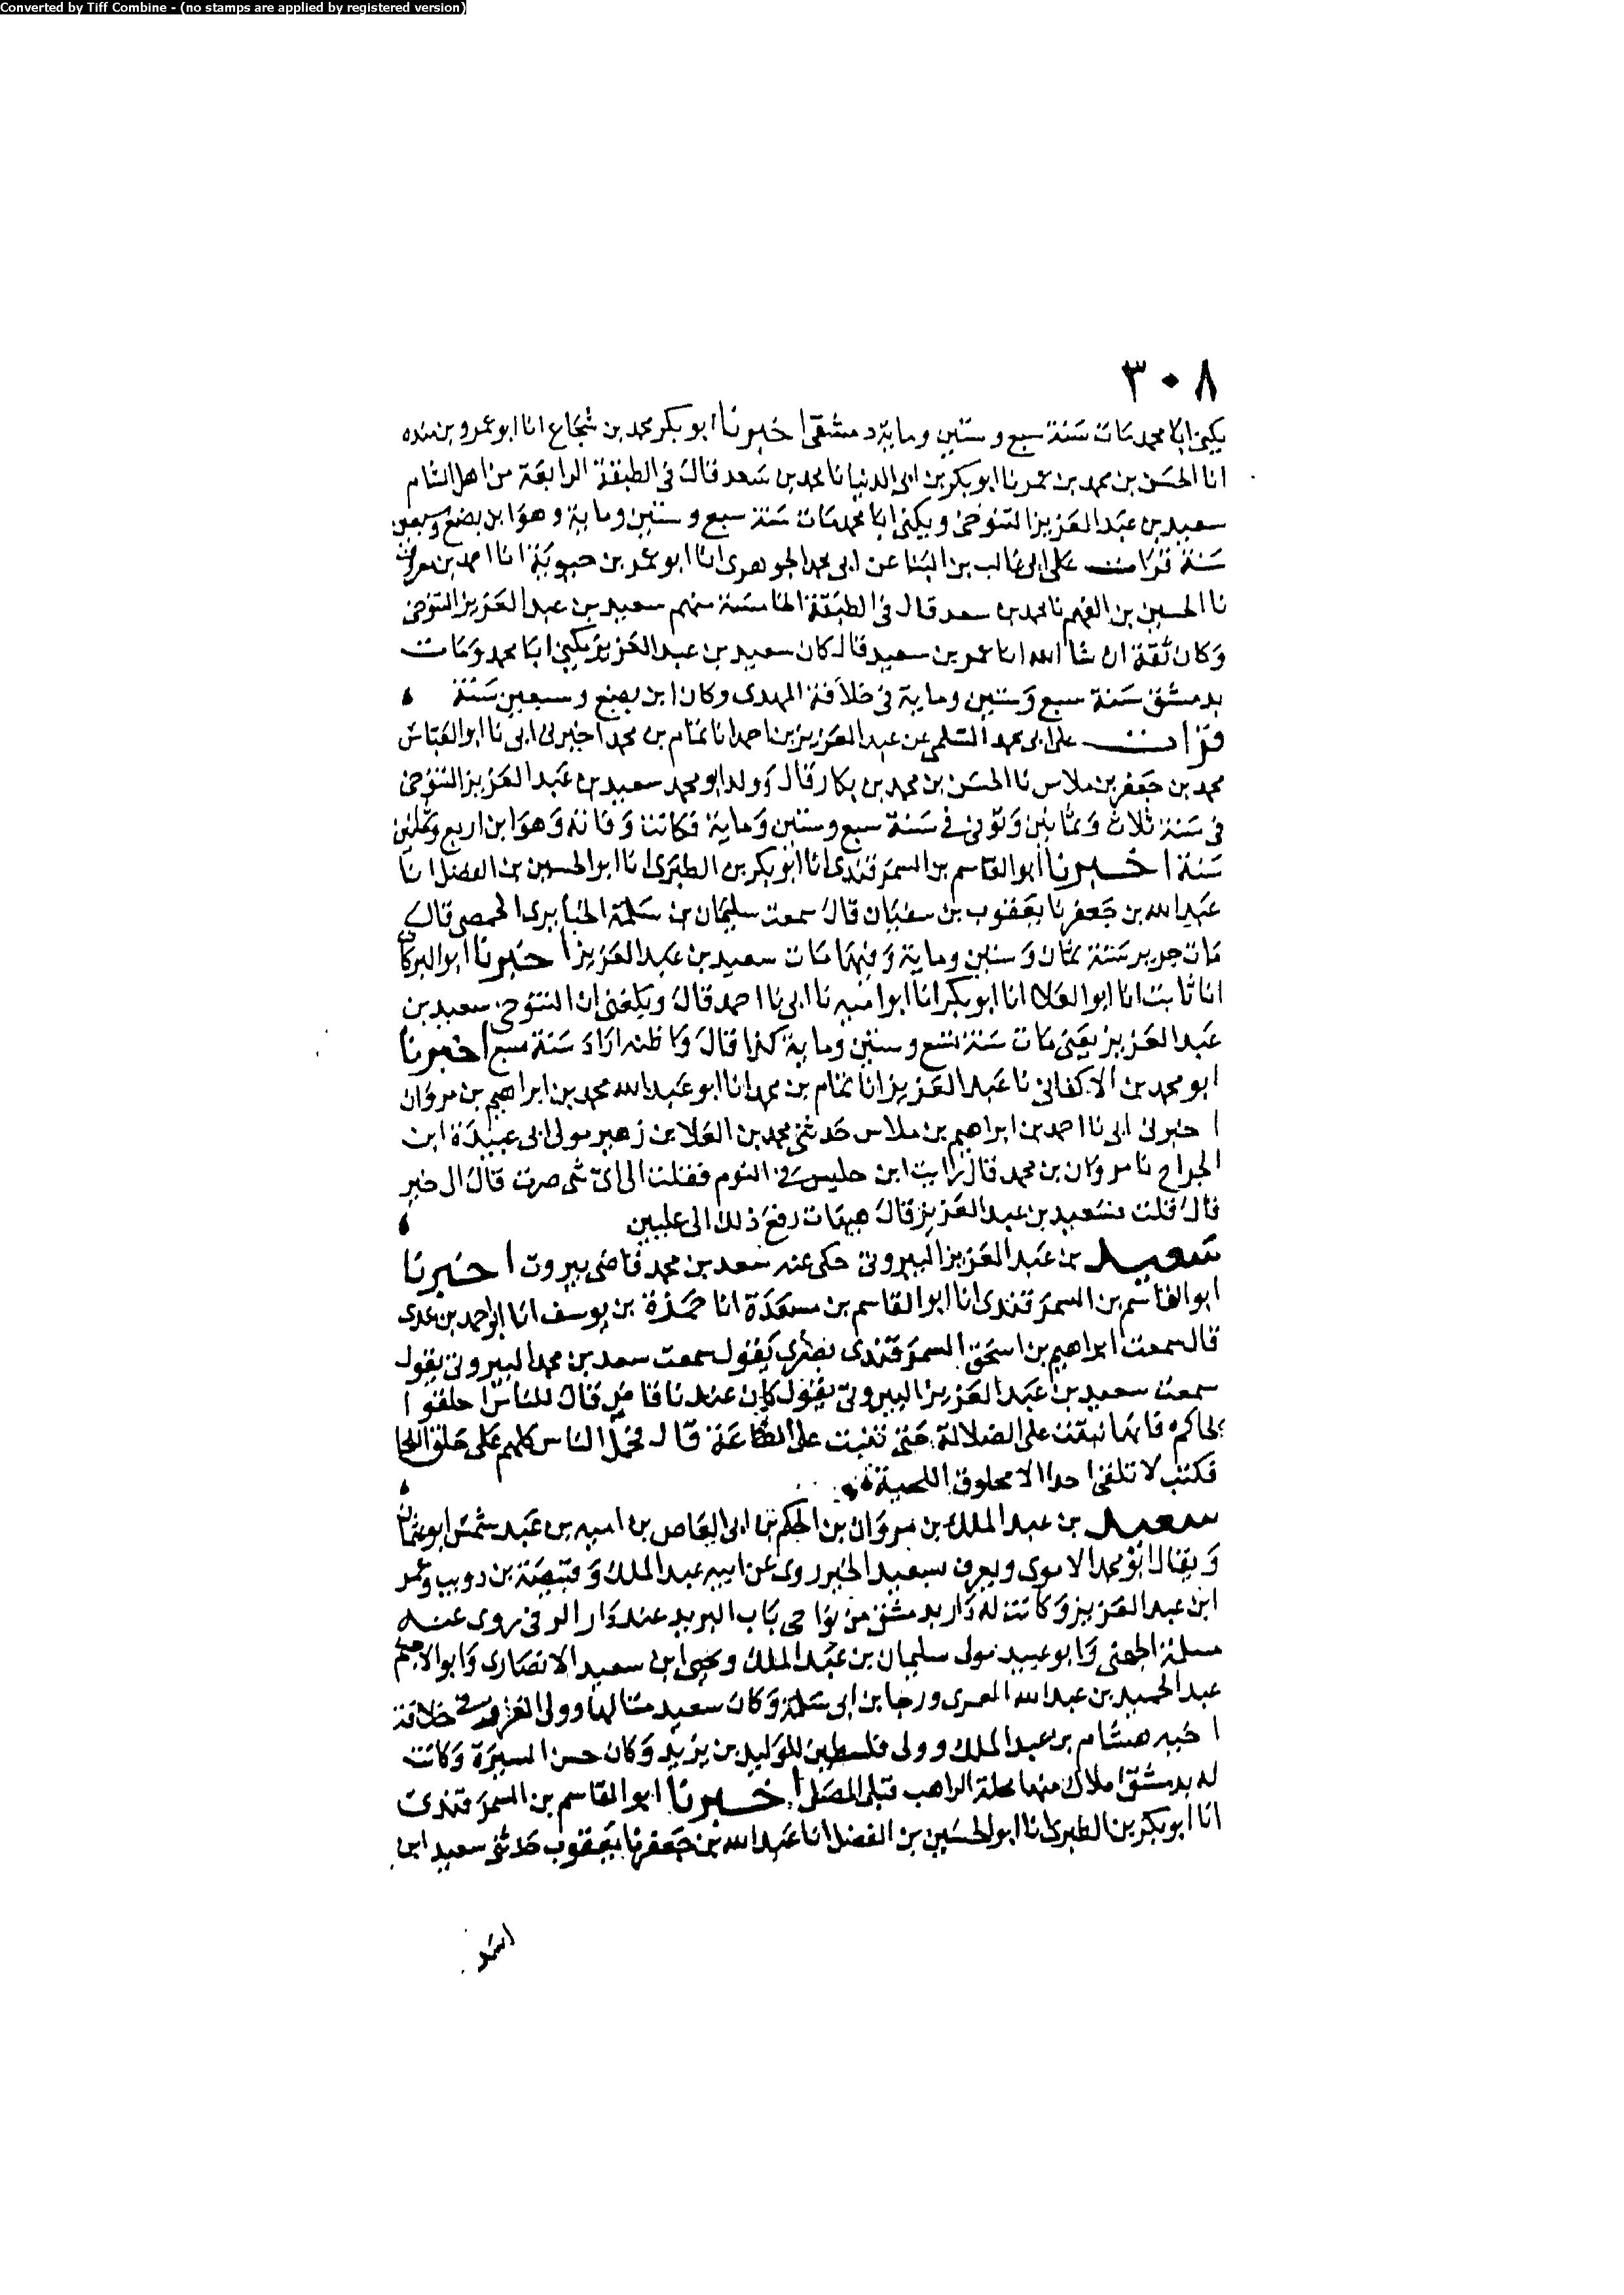 Converted by Tiff Combine - (no stamps are applied by registered version)
٣٠٨
يكنى ابا محمد مات سنة سبع وستين وماية دمشقى اخبرنا ابو بكر محمد بن شجاع انا ابو عمرو بن منده
انا الحسن بن محمد بن عمر نا ابو بكر بن ابى الدنيا نا محمد بن سعد قال فى الطبقة الرابعة من اهل الشام
سعيد بن عبد العزيز التنوخى ويكنى ابا محمد مات سنة سبع وستين وماية وهو ابن بضع وسبعين
سنة قرات على ابى غالب بن البنا عن ابى محمد الجوهرى انا ابو عمر بن حيوية انا احمد بن معروف
نا الحسين بن الفهم نا محمد بن سعد قال فى الطبقة الخامسة منهم سعيد بن عبد العزيز التنوخى
وكان ثقة ان شا الله انا عمر بن سعيد قال كان سعيد بن عبد العزيز يكنى ابا محمد ومات
بدمشق سنة سبع وستين وماية فى خلافة المهدى وكان ابن بضع وسبعين سنة
قرات على ابى محمد السلمى عن عبد العزيز بن احمد انا تمام بن محمد اخبرنى ابى نا ابو العباس
محمد بن جعفر بن ملاس نا الحسن بن محمد بن بكار قال وولد ابو محمد سعيد بن عبد العزيز التنوخى
فى سنة ثلاث وثمانين وتوفى فى سنة سبع وستين وماية فكانت وفاته وهو ابن اربع وثمانين
سنة اخبرنا ابو القاسم بن السمرقندى انا ابو بكر بن الطبرى انا ابو الحسين بن الفضل انا
عبد الله بن جعفر نا يعقوب بن سفيان قال سمعت سليمان بن سلمة الخبايرى الحمصى قال
مات حرير سنة ثمان وستين وماية وفيها مات سعيد بن عبد العزيز اخبرنا ابو البركات
انا ثابت انا ابو العلا انا ابو بكر انا ابو اميه نا ابى نا احمد قال وبلغنى ان التنوخى سعيد بن
عبد العزيز يعنى مات سنة تسع وستين وماية كذا قال واظنه اراد سنة سبع اخبرنا
ابو محمد بن الاكفانى نا عبد العزيز انا تمام بن محمد انا ابو عبد الله محمد بن ابراهيم بن مروان
اخبرنى ابى نا احمد بن ابراهيم بن ملاس حدثنى محمد بن العلا بن زهير مولى ابى عبيدة ابن
الجراح نا مروان بن محمد قال رايت ابن حليس فى النوم فقلت الى اى شى صرت قال الى خير
قال قلت فسعيد بن عبد العزيز قال هيهات رفع ذلك الى عليين
سعيد بن عبد العزيز البيروتى حكى عنه سعد بن محمد قاضى بيروت اخبرنا
ابو القاسم بن السمرقندى انا ابو القاسم بن مسعدة انا حمزة بن يوسف انا ابو احمد بن عدى
قال سمعت ابراهيم بن اسحق السمرقندى يقول سمعت سعد بن محمد البيروتى يقول
سمعت سعيد بن عبد العزيز البيروتى يقول كان عندنا قاص قال للناس احلقوا
لحاكم فانها نبتت على الضلالة حتى تنبت على الطاعة قال فحمل الناس كلهم على حلق اللحا
فكنت لا تلقى احدا الا محلوق اللحية
سعيد بن عبد الملك بن مروان بن الحكم بن ابى العاص بن اميه بن عبد شمس ابو عثمان
ويقال ابو محمد الاموى ويعرف بسعيد الخير روى عن ابيه عبد الملك وقبيصة بن ذويب وعمر
ابن عبد العزيز وكانت له دار بدمشق من نواحى باب البريد عند دار الرقى روى عنه
مسلمة الجهنى وابو عبيد مولى سليمان بن عبد الملك ويحيى ابن سعيد الانصارى وابو الاعجم
عبد الحميد بن عبد الله ورجا بن ابى سلمة وكان سعيد متالها وولى الغزو فى خلافة
اخيه هشام بن عبد الملك وولى فلسطين للوليد بن يزيد وكان حسن السيرة وكانت
له بدمشق املاك منها محلة الراهب قبلى المصلى اخبرنا ابو القاسم بن السمرقندى
انا ابو بكر بن الطبرى انا ابو الحسين بن الفضل انا عبد الله بن جعفر نا يعقوب حدثنى سعيد ابن
اسد